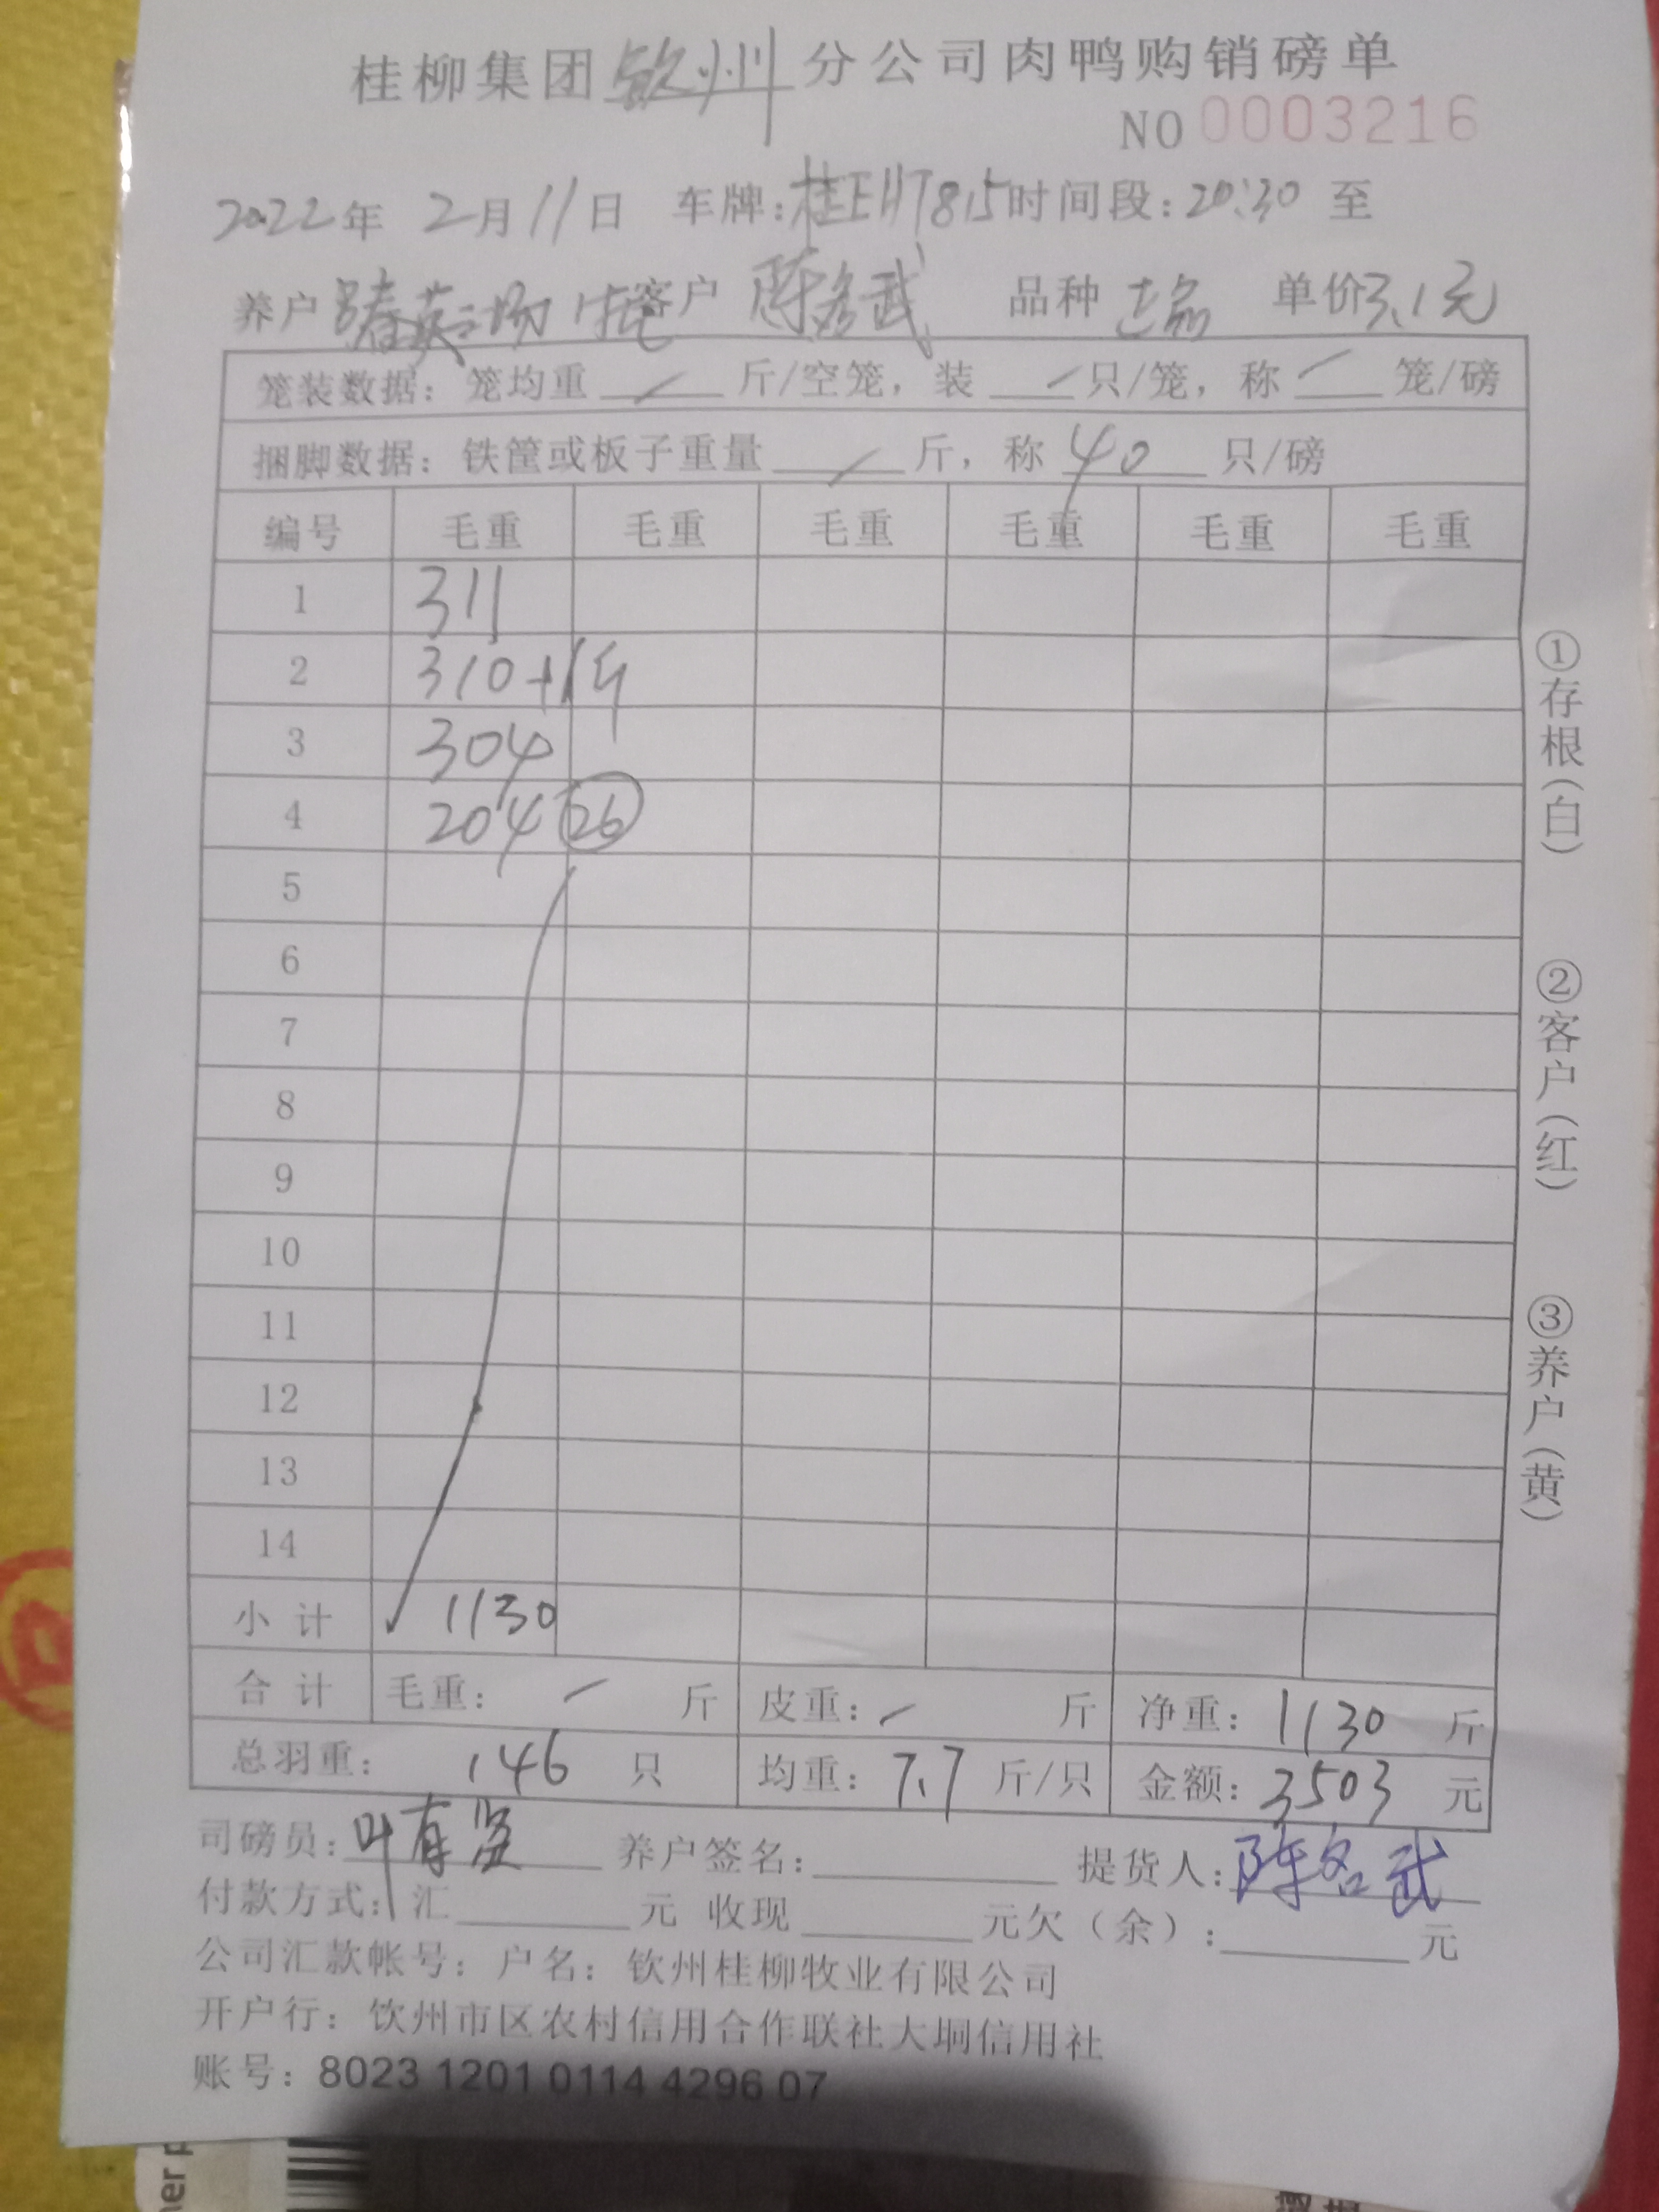 桂柳集团钦州分公司肉鸭购销磅单
NO 0003216
2022年 2月11日 车牌:桂EHT815时间段:20:30 至
养户 春英场 客户 陈名武 品种 单价3.1元
笼装数据：笼均重 斤/空笼，装 只/笼，称 笼/磅
捆脚数据：铁筐或板子重量 斤，称 40 只/磅
编号 毛重 毛重 毛重 毛重 毛重 毛重
1 311
2 310+1斤
3 304
4 204 26
5
6
7
8
9
10
11
12
13
14
小 计 1130
合 计 毛重： 斤 皮重： 斤 净重：1130 斤
总羽重：146 只 均重：7.7 斤/只 金额：3503 元
司磅员：叶有 养户签名： 提货人：陈名武
付款方式：汇 元 收现 元欠（余）： 元
公司汇款帐号：户名：钦州桂柳牧业有限公司
开户行：钦州市区农村信用合作联社大垌信用社
账号：8023 1201 0114 4296 07
①存根(白) ②客户(红) ③养户(黄)